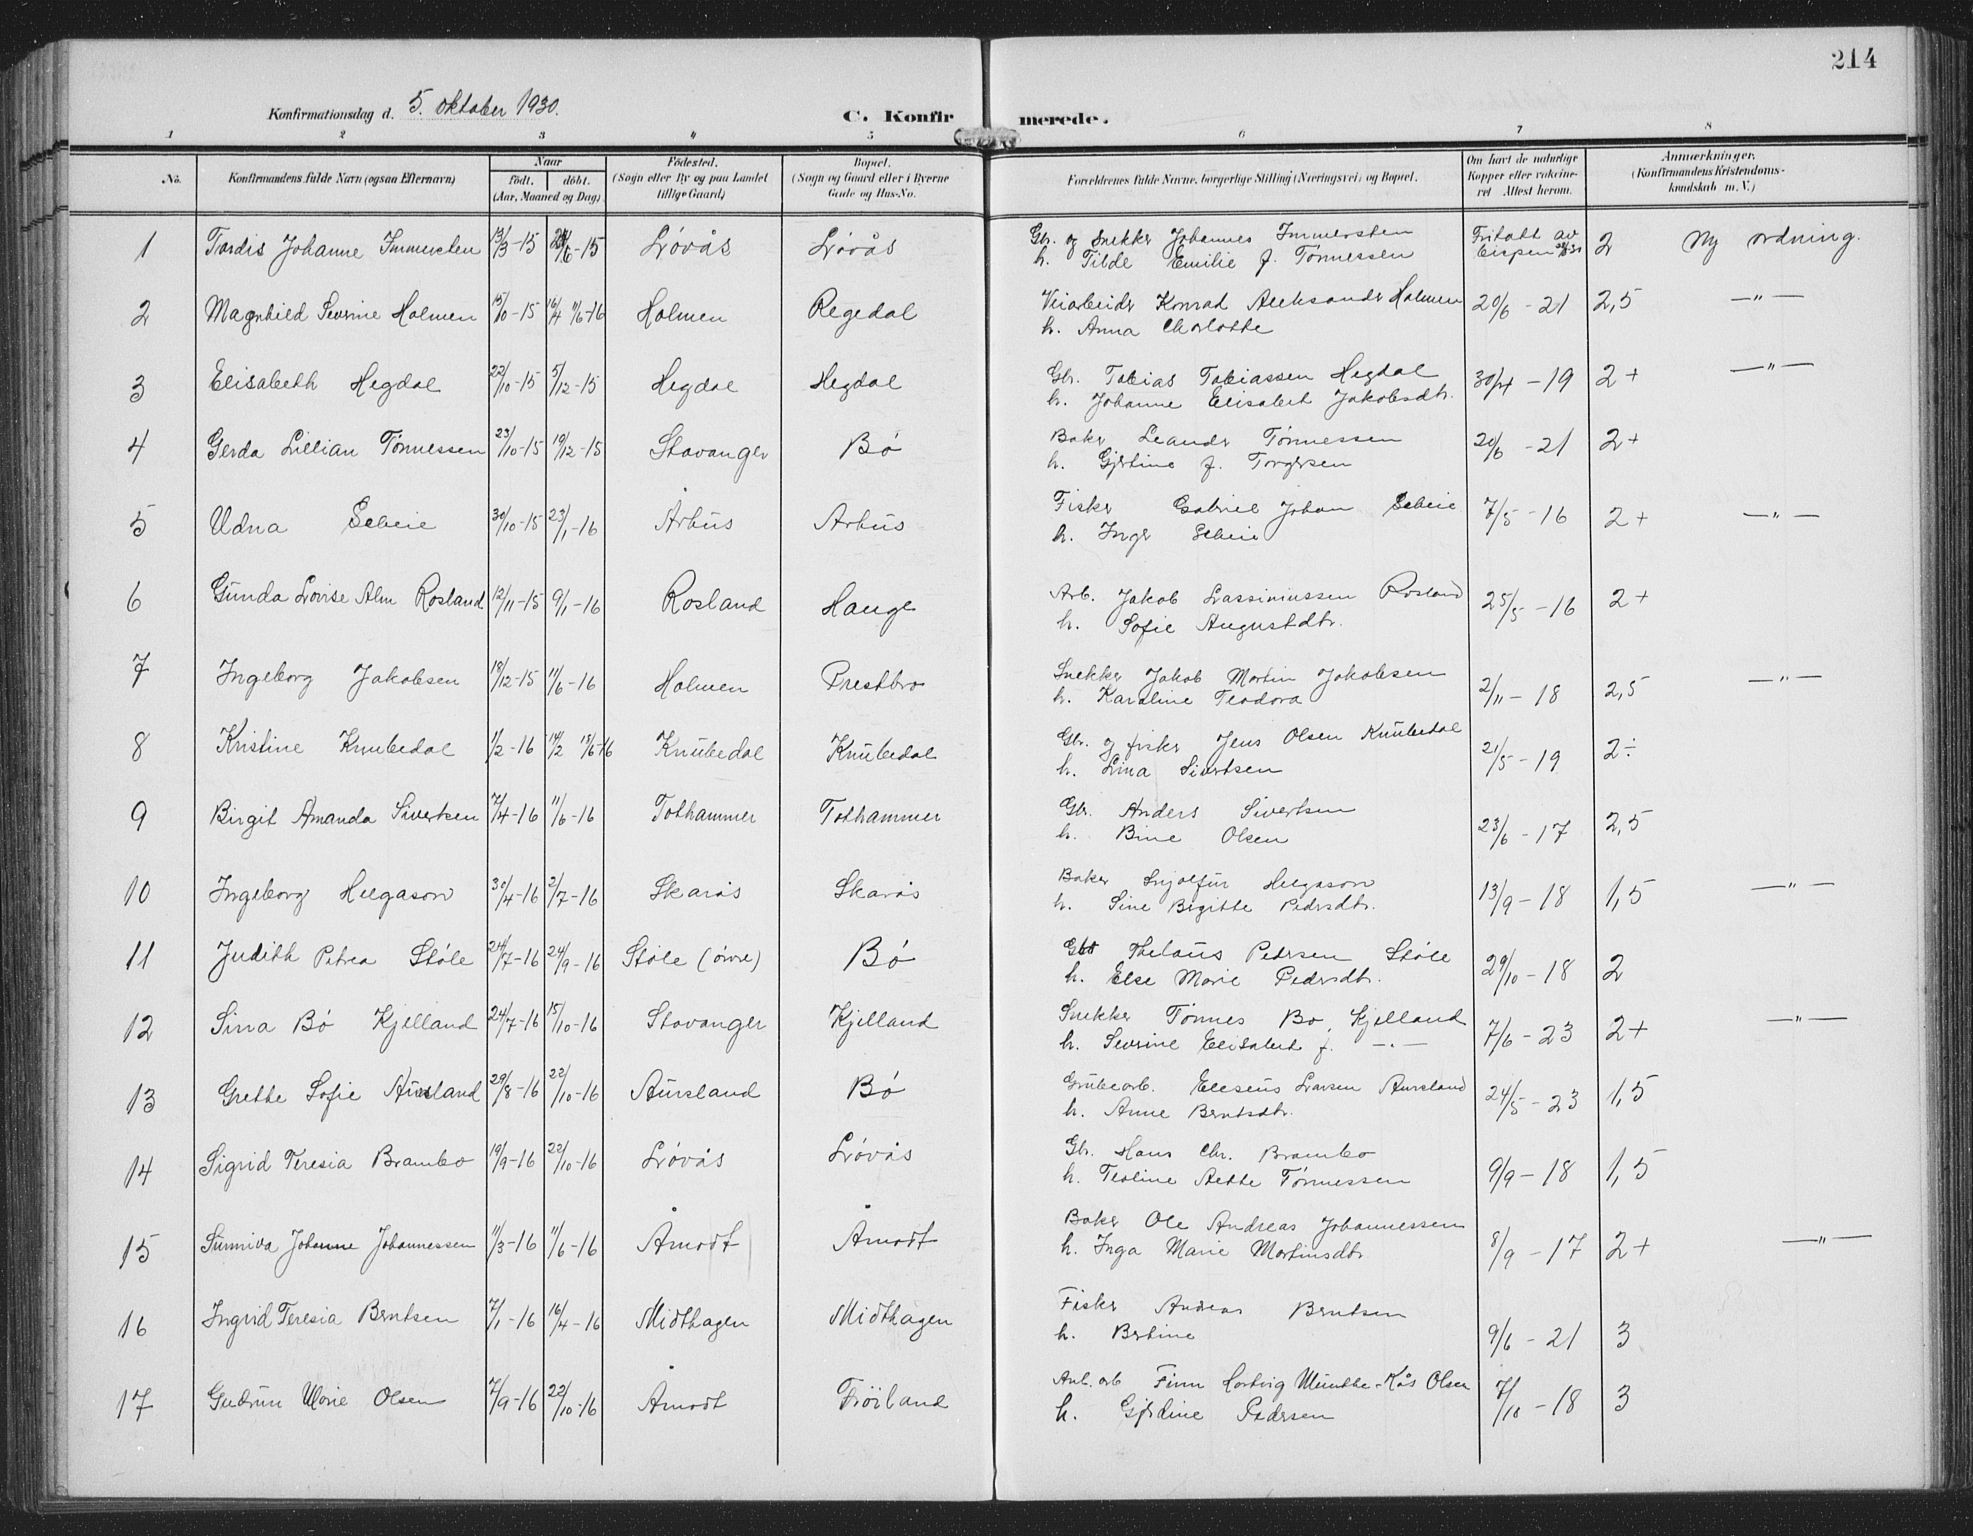 214
Konfirmationsdag d. 5. oktober 1930.
C. Konfirmerede.
1 2 3 4 5 6 7 8
No. Konfirmandens fulde Navn (ogsaa Efternavn) Naar født. døbt. (Aar, Maaned og Dag) Fødested. (Sogn eller By og paa Landet tillige Gaard) Bopæl. (Sogn og Gaard eller i Byerne Gade og Hus-No. Forældrenes fulde Navne, borgerlige Stilling (Næringsvei) og Bopæl. Om havt de naturlige Kopper eller vaccineret Attest herom. Anmærkninger. (Konfirmandens Kristendomskundskab m. V.)
1 Tordis Johanne Immersten 13/3-15 /6-15 Løvås Løvås Gbr. og Snekker Johannes Immersten Fritatt av 2 Ny ordning.
h. Tilde Emilie f. Tønnessen
2 Magnhild Severine Holmen 15/10-15 16/4 11/6-16 Holmen Regedal Veiarbeider Konrad Aleksander Holmen 20/6-21 2,5 —"—
h. Anna Charlotte
3 Elisabeth Hegdal 22/10-15 5/12-15 Hegdal Hegdal Gbr. Tobias Tobiassen Hegdal 30/4-19 2+ —"—
h. Johanne Elisabet Jakobsdtr.
4 Gerda Lillian Tønnessen 23/10-15 19/12-15 Stavanger Bø Baker Leander Tønnessen 20/6-21 2+
h. Gjertine f. Torgersen
5 Udna Sebeie 30/10-15 23/1-16 Århus Århus Fisker Gabriel Johan Sebeie 7/5-16 2+ —"—
h. Inger Sebeie
6 Gunda Lovise Alm Rosland 12/11-15 9/1-16 Rosland Hauge Arb. Jakob Lassiniussen Rosland 25/5-16 2+
h. Sofie Augustdtr.
7 Ingeborg Jakobsen 18/12-15 11/6-16 Holmen Prestbro Snekker Jakob Martin Jakobsen 2/11-18 2,5 —"—
h. Karoline Teodora
8 Kristine Knubedal 1/2-16 14/2 15/6-16 Knubedal Knubedal Gbr. og fisker Jens Olsen Knubedal 21/5-19 2÷
h. Lina Sivertsen
9 Birgit Amanda Sivertsen 7/4-16 11/6-16 Tothammer Tothammer Gbr. Anders Sivertsen 23/6-17 2,5
h. Bine Olsen
10 Ingeborg Helgason 30/4-16 2/7-16 Skarås Skarås Baker Helgason 13/9-18 1,5 —"—
h. Sine Birgitte Pedersdtr.
11 Judith Petrea Støle 24/7-16 24/9-16 Støle (øvre) Bø Thelaus Pedersen Støle 29/10-18 2
h. Else Marie Pedersdtr.
12 Sina Bø Kjelland 24/7-16 15/10-16 Stavanger Kjelland Snekker Tønnes Bø, Kjelland 7/6-23 2+ —"—
h. Severine Elisabet f. —"—
13 Grethe Sofie Aursland 29/8-16 22/10-16 Aursland Bø Grubearb. Eleseus Larsen Aursland 24/5-23 1,5
h. Anne Berntsdtr.
14 Sigrid Teresia Brambo 19/9-16 22/10-16 Løvås Løvås Gbr. Hans Chr. Brambo 9/9-18 1,5
h. Teoline Aette Tønnessen
15 Sunniva Johanne Johannessen 11/3-16 11/6-16 Åmodt Åmodt Baker Ole Andreas Johannessen 8/9-17 2+ —"—
h. Inga Marie Martinsdtr.
16 Ingrid Teresia Berntsen 7/1-16 16/4-16 Midthagen Midthagen Fisker Andreas Berntsen 9/6-21 3
h. Bertine
17 Gudrun Marie Olsen 7/9-16 22/10-16 Åmodt Frøiland Anl. arb. Finn Hartvig Munthe-Kås Olsen 7/10-18 3
h. Gjerdine Pedersen